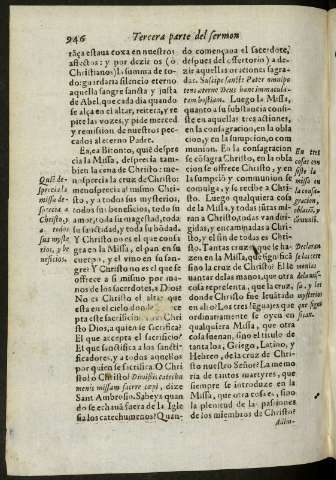 946 Tercera parte del sermon
rāça estaua coxa en nuestros
afectos: y por dezir os (ò
Christianos) la summa de to-
do: guardada silencio eterno
aquella sangre santa y justa
de Abel, que cada dia quando
se alça en el altar, reitera, y re
pite las vozes, y pide merced,
y remission de nuestros pec-
cados al eterno Padre.
Ea, ea Bitonto, què despre
cia la Missa, desprecia tam-
bien la cena de Christo: me-
nosprecia la cruz de Christo:
menosprecia al mismo Chri-
sto, y a todos sus mysterios, a
todos sus beneficios, todo su
amor, y toda su magestad, toda
su santidad, y toda su bōdad.
Y Christo no es el que consa-
gra en la Missa, el pan en su
cuerpo, y el vino en su san-
gre? Y Christo no es el que se
offresce a si mismo por ma-
nos de los sacerdotes, a Dios?
No es Christo el altar que
esta en el cielo donde
pta este sacrificio Chri
sto Dios, a quien se sacrifica?
El que accepta el sacrificio?
El que sanctifica a los sancti-
ficadores, y a todos aquellos
por quien se sacrifica. O Chri
sto! o Christo! Dimissis catechu
menis missam facere cœpi, dize
Sant Ambrosio. Sabeys quan
do se echauā fuera de la Igle
sia los catechumenos? Quan-
Quië de-
sprecia la
missa de-
sprecia a
Christo,
a todos
sus myste
rios, y be
neficios.
do començaua el sacerdote,
despues del offertorio) a de-
zir aquellas oraciones sagra-
das. Suscipe sancte Pater omnipo
tens æterne Deus hanc immacula-
tam hostiam. Luego la Missa,
quanto a la substancia consi-
ste en aquellas tres actiones,
en la consagracion, en la obla
cion, y en la sumpcion, o com
munion. En la consagracion
se cōsagra Christo, en la obla
cion se offrece Christo, y en
la sumpciō y communion se
cōmulga, y se recibe Christo.
Luego qualquiera cosa
de la Missa, y todas juntas mi
ran a Christo, todas van diri-
gidas, y encaminadas a Chri-
sto, y el fin de todas es Chri
sto. Tantas cruzes que se ha-
zen en la Missa, que significā
sino la cruz de Christo? El le-
uantar de las manos, que otra
cosa representa, que la cruz,
donde Christo fue leuātado
en alto? Los tres lēguajes que
ordinariamente se oyen en
qualquiera Missa, que otra
cosa suenan, sino el titulo de
tanta loa, Griego, Latino, y
Hebreo, de la cruz de Chri-
sto nuestro Señor? La memo-
ria de tantos martyres, que
siempre se introduze en la
Missa, que otra cosa es, sino
la plenitud de la passiones
de los miembros de Christo?
En tres
cosas con
siste la
missa en
la consa-
gracion,
oblaciō, y
sumptiō.
Declaran
se las cere
monias
de la mis-
sa, y los
mysterios
que signi-
fican.